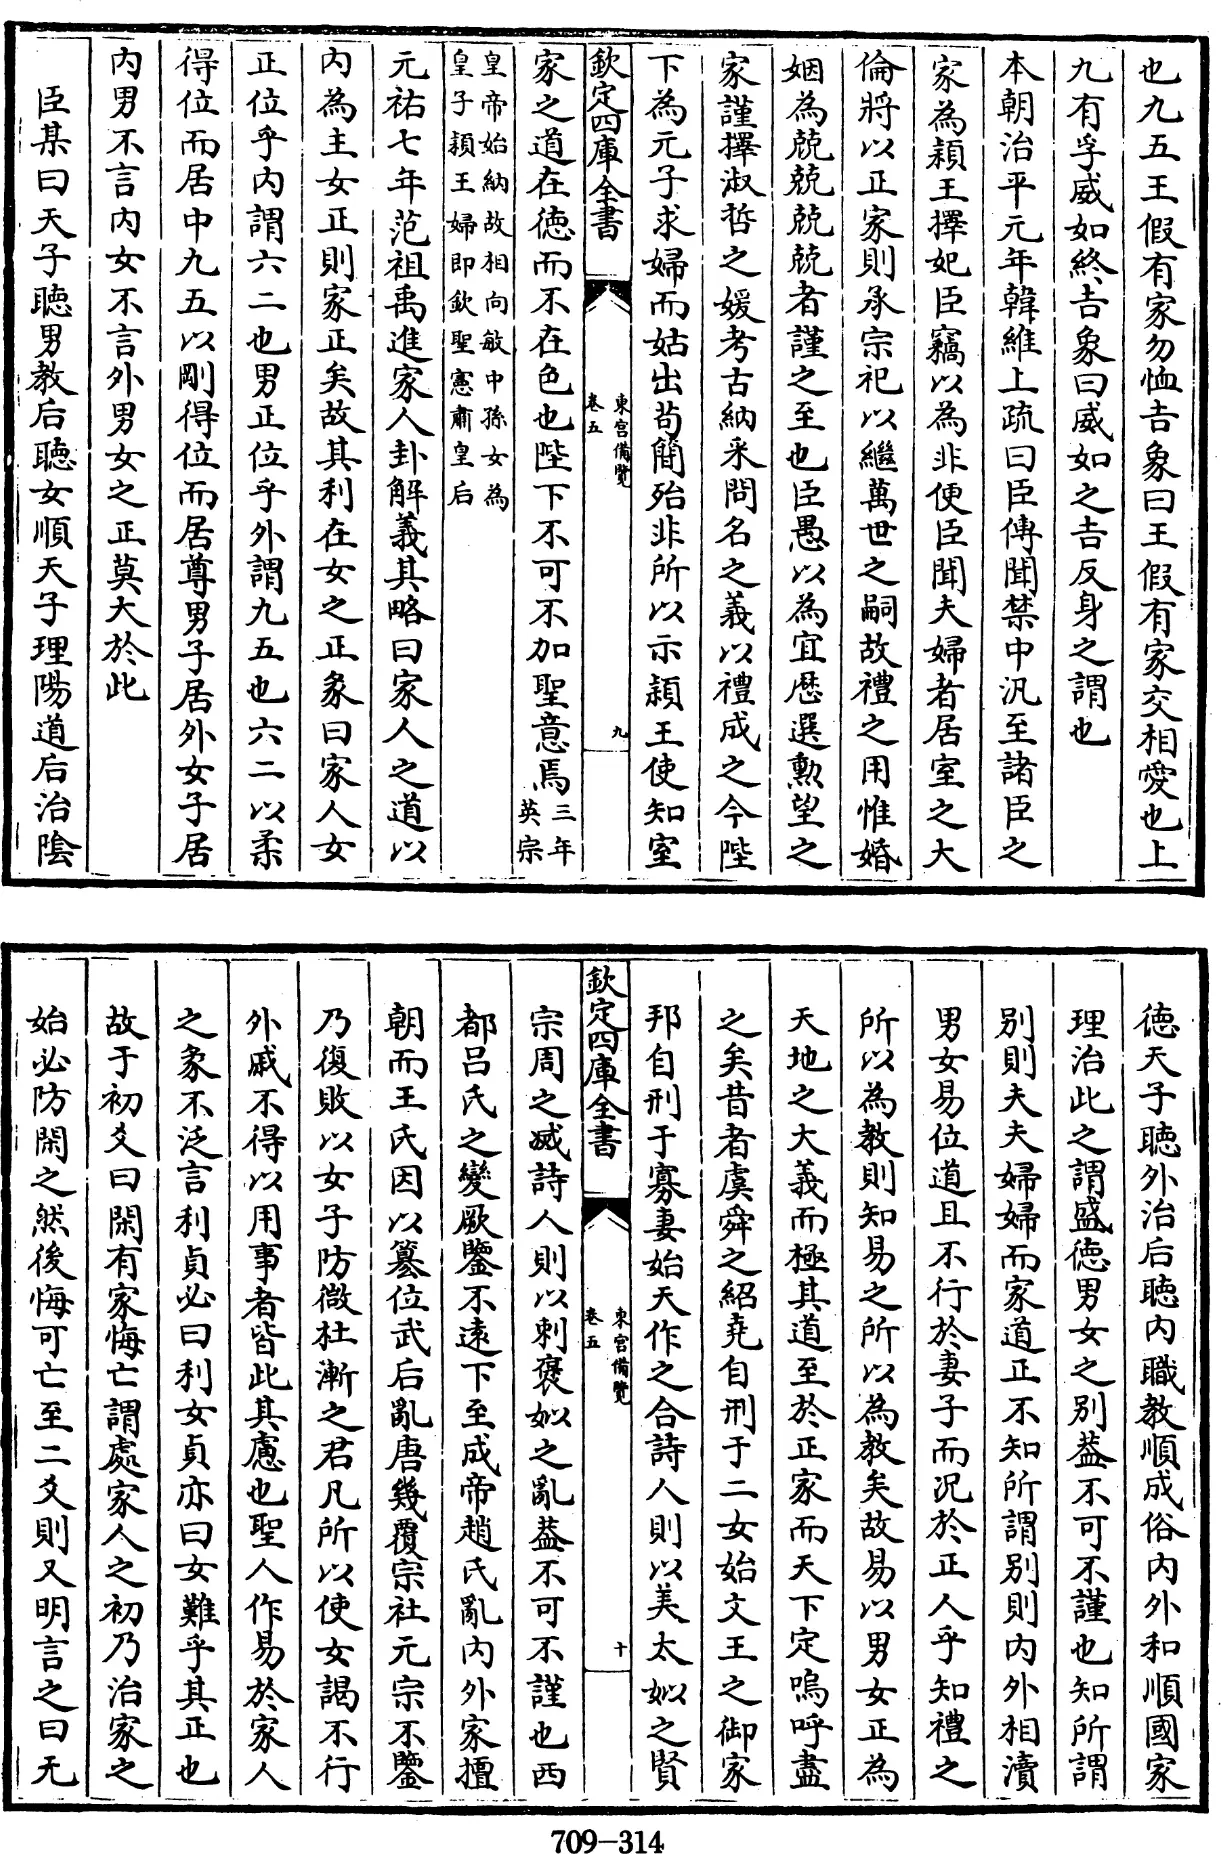 也九五王假有家勿恤吉象曰王假有家交相愛也上
九有孚威如終吉象曰威如之吉反身之謂也
本朝治平元年韓維上疏曰臣傳聞禁中汎至諸臣之
家為潁王擇妃臣竊以為非便臣聞夫婦者居室之大
倫將以正家則承宗祀以繼萬世之嗣故禮之用惟婚
姻為兢兢兢兢者謹之至也臣愚以為宜歴選勲望之
家謹擇淑哲之媛考古納采問名之義以禮成之今陛
下為元子求婦而姑出茍簡殆非所以示潁王使知室
欽定四庫全書
東宮備覽
卷五
九
家之道在徳而不在色也陛下不可不加聖意焉三年英宗
皇帝始納故相向敏中孫女為
皇子潁王婦即欽聖憲肅皇后
元祐七年范祖禹進家人卦解義其略曰家人之道以
内為主女正則家正矣故其利在女之正彖曰家人女
正位乎内謂六二也男正位乎外謂九五也六二以柔
得位而居中九五以剛得位而居尊男子居外女子居
内男不言内女不言外男女之正莫大於此
臣某曰天子聴男教后聴女順天子理陽道后治陰
徳天子聴外治后聴内職教順成俗内外和順國家
理治此之謂盛徳男女之别葢不可不謹也知所謂
别則夫夫婦婦而家道正不知所謂别則内外相瀆
男女易位道且不行於妻子而况於正人乎知禮之
所以為教則知易之所以為教矣故易以男女正為
天地之大義而極其道至於正家而天下定嗚呼盡
之矣昔者虞舜之紹堯自刑于二女始文王之御家
邦自刑于寡妻始天作之合詩人則以美太姒之賢
欽定四庫全書
東宮備覽
卷五
十
宗周之烕詩人則以刺褒姒之亂葢不可不謹也西
都吕氏之變厥鑒不逺下至成帝趙氏亂内外家擅
朝而王氏因以簒位武后亂唐幾覆宗社元宗不鑒
乃復敗以女子防微杜漸之君凡所以使女謁不行
外戚不得以用事者皆此其慮也聖人作易於家人
之彖不泛言利貞必曰利女貞亦曰女難乎其正也
故于初爻曰閑有家悔亡謂處家人之初乃治家之
始必防閑之然後悔可亡至二爻則又明言之曰无
709-314